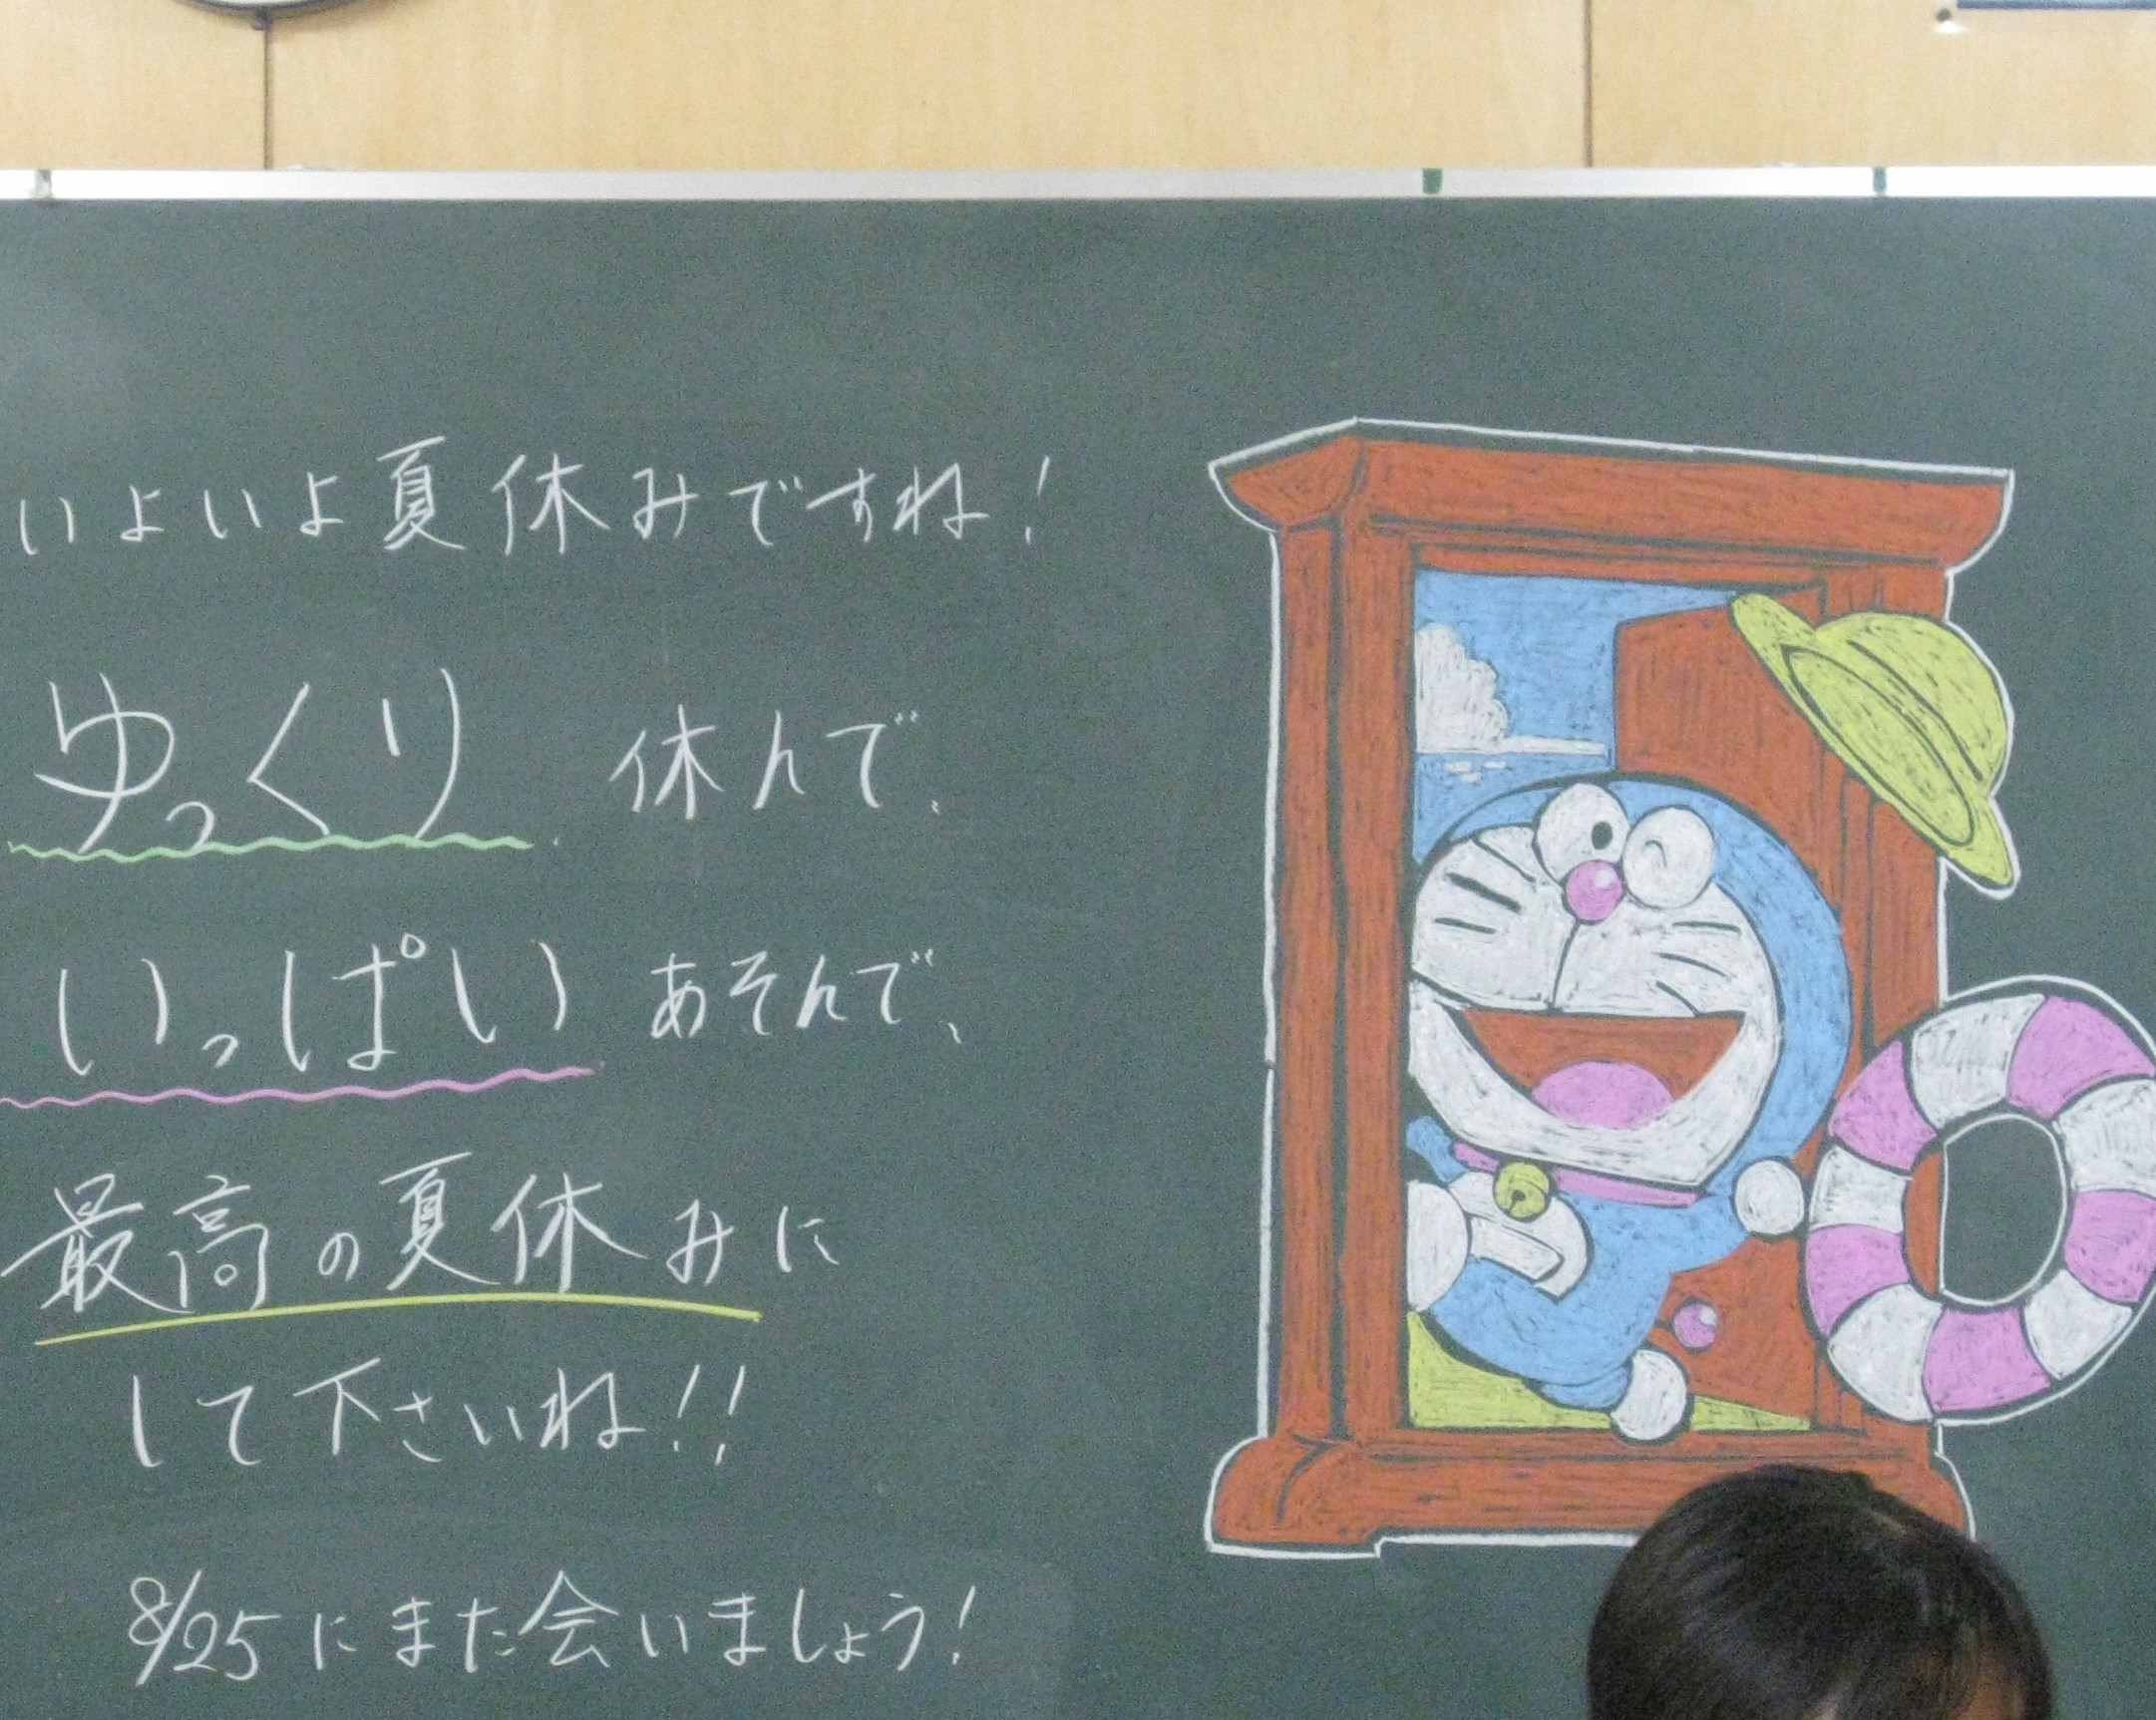 いよいよ夏休みですね!
ゆっくり休んで、
いっぱいあそんで、
最高の夏休みに
して下さいね!!
8/25にまた会いましょう!